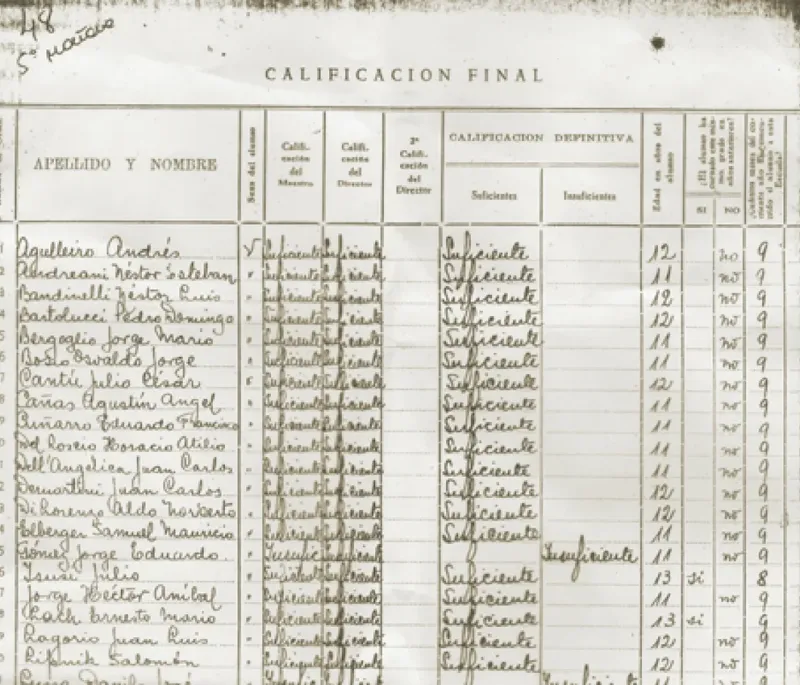 48
5º mañana
CALIFICACION FINAL
APELLIDO Y NOMBRE
Sexo del alumno
Califi-
cación
del
Maestro
Califi-
cación
del
Director
2ª
Califi-
cación
del
Director
CALIFICACION DEFINITIVA
Suficientes
Insuficientes
Edad en años del
alumno
¿El alumno ha
cursado este mis-
mo grado en
años anteriores?
SI NO
1 Agulleiro Andrés V Suficiente Suficiente Suficiente 12 no 9
2 Andreani Néstor Esteban " Suficiente Suficiente Suficiente 11 no 9
3 Bandinelli Néstor Luis " Suficiente Suficiente Suficiente 12 no 9
4 Bartolucci Pedro Domingo " Suficiente Suficiente Suficiente 12 no 9
5 Bergoglio Jorge Mario " Suficiente Suficiente Suficiente 11 no 9
6 Bosio Osvaldo Jorge " Suficiente Suficiente Suficiente 11 no 9
7 Cantú Julio César " Suficiente Suficiente Suficiente 12 no 9
8 Cañas Agustín Angel " Suficiente Suficiente Suficiente 11 no 9
9 Eduardo Francisco " Suficiente Suficiente Suficiente 11 no 9
0 Del Horacio Atilio " Suficiente Suficiente Suficiente 11 no 9
1 Dell'Angelica Juan Carlos " Suficiente Suficiente Suficiente 11 no 9
2 Demartini Juan Carlos " Suficiente Suficiente Suficiente 12 no 9
3 Di Lorenzo Aldo Norberto " Suficiente Suficiente Suficiente 12 no 9
4 Elberger Samuel Mauricio " Suficiente Suficiente Suficiente 11 no 9
5 Gómez Jorge Eduardo. " Insuficiente 11 no 9
6 Julio " Suficiente Suficiente Suficiente 13 si 8
7 Jorge Héctor Aníbal " Suficiente Suficiente Suficiente 11 no 9
8 Lach Ernesto Mario " Suficiente Suficiente Suficiente 13 si 9
9 Lagorio Juan Luis " Suficiente Suficiente Suficiente 12 no 9
Lipnik Salomón " Suficiente Suficiente Suficiente 12 no 9